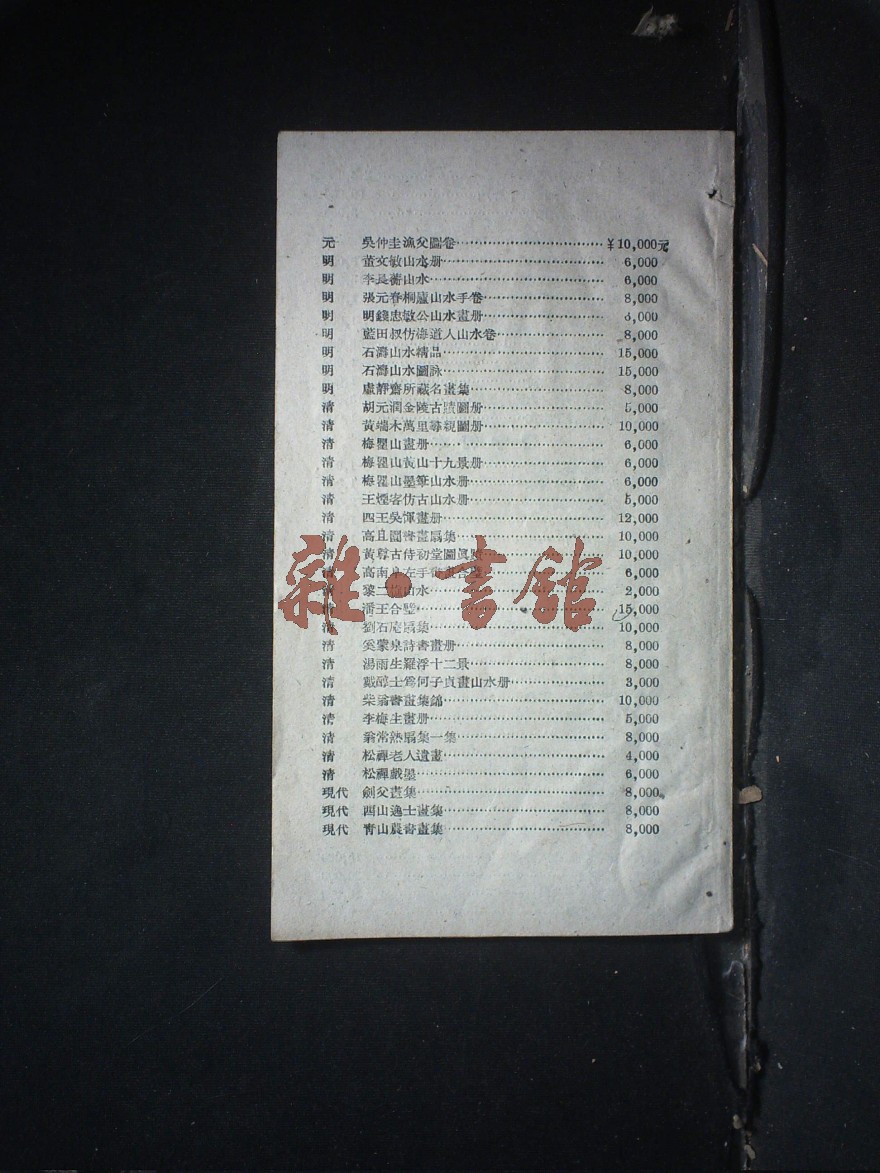 元 吳仲圭漁父圖卷 ¥10,000元
明 董文敏山水册 6,000
明 李長蘅山水 6,000
明 張元春桐廬山水手卷 8,000
明 明錢忠敏公山水畫册 6,000
明 藍田叔仿海道人山水卷 8,000
明 石濤山水精品 15,000
明 石濤山水圖詠 15,000
明 虛靜齋所藏名畫集 8,000
清 胡元潤金陵古蹟圖册 5,000
清 黃端木萬里尋親圖册 10,000
清 梅瞿山畫册 6,000
清 梅瞿山黃山十九景册 6,000
清 梅瞿山墨筆山水册 6,000
清 王煙客仿古山水册 5,000
清 四王吳惲畫册 12,000
清 高且園書畫扇集 10,000
清 黃尊古侍初堂圖眞蹟 10,000
清 高南阜左手 6,000
黎二樵山水 2,000
潘王合璧 15,000
清 劉石庵扇集 10,000
清 奚蒙泉詩書畫册 8,000
清 湯雨生羅浮十二景 8,000
清 戴醇士爲何子貞畫山水册 3,000
清 柴翁書畫集錦 10,000
清 李梅生畫册 5,000
清 翁常熟扇集一集 8,000
清 松禪老人遺畫 4,000
清 松禪戲墨 6,000
現代 劍父畫集 8,000
現代 西山逸士畫集 8,000
現代 青山農書畫集 8,000
雜·書館